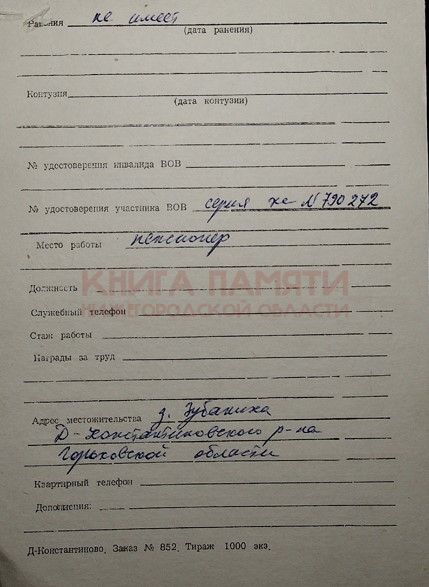 Ранения не имеет
(дата ранения)
Контузия
(дата контузии)
№ удостоверения инвалида ВОВ
№ удостоверения участника ВОВ серия же № 790272
Место работы пенсионер
КНИГА ПАМЯТИ
Должность
НИЖЕГОРОДСКОЙ ОБЛАСТИ
Служебный телефон
Стаж работы
Награды за труд
Адрес местожительства д. Зубаниха
Д-Константиновского р-на
Горьковской области
Квартирный телефон
Дополнения:
Д-Константиново, Заказ № 852. Тираж 1000 экз.